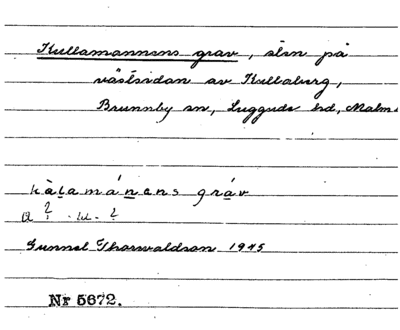 Kullamannens grav, sten på
västsidan av Kullaberg,
Brunnby sn, Luggude hd, Malm
kàlamánens gráv
Gunnel Thorwaldson 1945
Nr 5672.